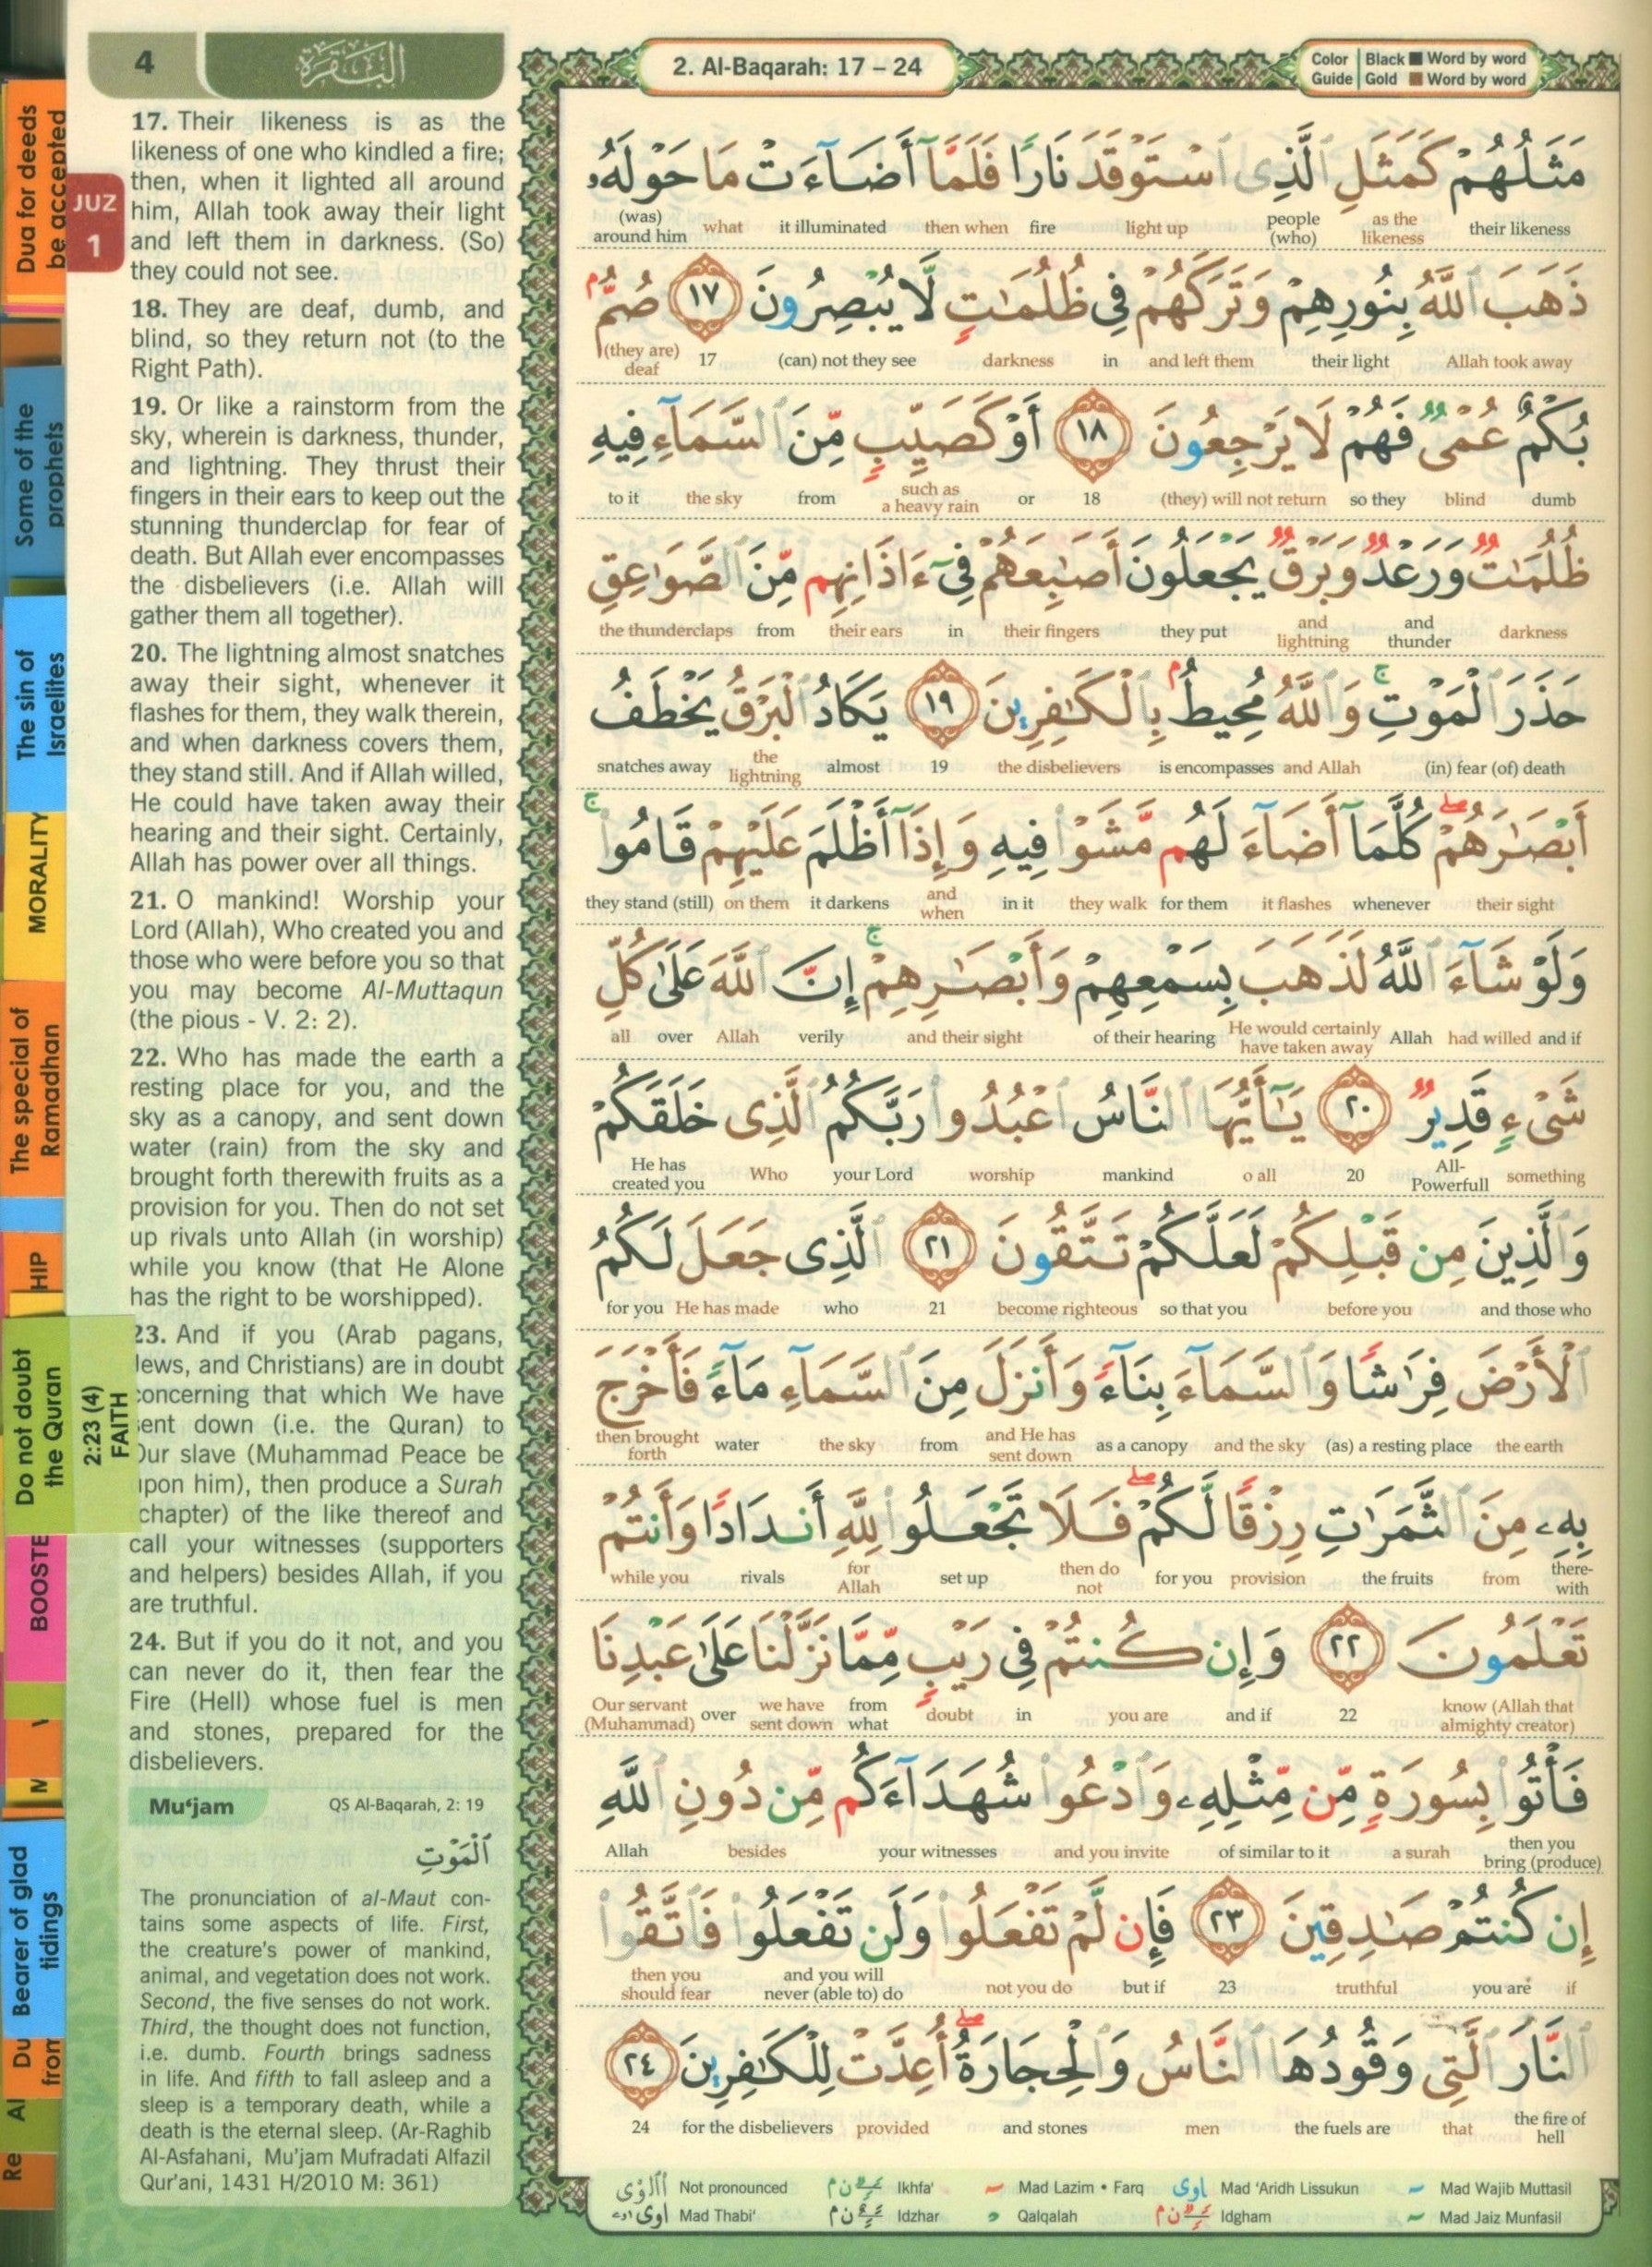 4
البقرة
2. Al-Baqarah: 17 – 24
Color Guide
Black Word by word
Gold Word by word
JUZ
1
Dua for deeds
be accepted
Some of the
prophets
The sin of
Israelites
MORALITY
The special of
Ramadhan
HIP
Do not doubt
the Quran
2:23 (4)
FAITH
BOOSTE
M
Bearer of glad
tidings
Du
from
Al
Re
17. Their likeness is as the
likeness of one who kindled a fire;
then, when it lighted all around
him, Allah took away their light
and left them in darkness. (So)
they could not see.
18. They are deaf, dumb, and
blind, so they return not (to the
Right Path).
19. Or like a rainstorm from the
sky, wherein is darkness, thunder,
and lightning. They thrust their
fingers in their ears to keep out the
stunning thunderclap for fear of
death. But Allah ever encompasses
the disbelievers (i.e. Allah will
gather them all together).
20. The lightning almost snatches
away their sight, whenever it
flashes for them, they walk therein,
and when darkness covers them,
they stand still. And if Allah willed,
He could have taken away their
hearing and their sight. Certainly,
Allah has power over all things.
21. O mankind! Worship your
Lord (Allah), Who created you and
those who were before you so that
you may become Al-Muttaqun
(the pious - V. 2: 2).
22. Who has made the earth a
resting place for you, and the
sky as a canopy, and sent down
water (rain) from the sky and
brought forth therewith fruits as a
provision for you. Then do not set
up rivals unto Allah (in worship)
while you know (that He Alone
has the right to be worshipped).
23. And if you (Arab pagans,
Jews, and Christians) are in doubt
concerning that which We have
sent down (i.e. the Quran) to
Our slave (Muhammad Peace be
upon him), then produce a Surah
(chapter) of the like thereof and
call your witnesses (supporters
and helpers) besides Allah, if you
are truthful.
24. But if you do it not, and you
can never do it, then fear the
Fire (Hell) whose fuel is men
and stones, prepared for the
disbelievers.
Mu‘jam
QS Al-Baqarah, 2: 19
ٱلْمَوْتِ
The pronunciation of al-Maut con-
tains some aspects of life. First,
the creature's power of mankind,
animal, and vegetation does not work.
Second, the five senses do not work.
Third, the thought does not function,
i.e. dumb. Fourth brings sadness
in life. And fifth to fall asleep and a
sleep is a temporary death, while a
death is the eternal sleep. (Ar-Raghib
Al-Asfahani, Mu'jam Mufradati Alfazil
Qur'ani, 1431 H/2010 M: 361)
مَثَلُهُمْ كَمَثَلِ ٱلَّذِى ٱسْتَوْقَدَ نَارًا فَلَمَّآ أَضَآءَتْ مَا حَوْلَهُۥ
their likeness as the likeness people (who) light up fire then when it illuminated what (was) around him
ذَهَبَ ٱللَّهُ بِنُورِهِمْ وَتَرَكَهُمْ فِى ظُلُمَـٰتٍ لَّا يُبْصِرُونَ ١٧ صُمٌّۢ
Allah took away their light and left them in darkness (can) not they see 17 (they are) deaf
بُكْمٌ عُمْىٌ فَهُمْ لَا يَرْجِعُونَ ١٨ أَوْ كَصَيِّبٍ مِّنَ ٱلسَّمَآءِ فِيهِ
dumb blind so they (they) will not return 18 or such as a heavy rain from the sky to it
ظُلُمَـٰتٌ وَرَعْدٌ وَبَرْقٌ يَجْعَلُونَ أَصَـٰبِعَهُمْ فِىٓ ءَاذَانِهِم مِّنَ ٱلصَّوَٰعِقِ
darkness and thunder and lightning they put their fingers in their ears from the thunderclaps
حَذَرَ ٱلْمَوْتِ ۚ وَٱللَّهُ مُحِيطٌۢ بِٱلْكَـٰفِرِينَ ١٩ يَكَادُ ٱلْبَرْقُ يَخْطَفُ
(in) fear (of) death and Allah is encompasses the disbelievers 19 almost the lightning snatches away
أَبْصَـٰرَهُمْ ۖ كُلَّمَآ أَضَآءَ لَهُم مَّشَوْا۟ فِيهِ وَإِذَآ أَظْلَمَ عَلَيْهِمْ قَامُوا۟ ۚ
their sight whenever it flashes for them they walk in it and when it darkens on them they stand (still)
وَلَوْ شَآءَ ٱللَّهُ لَذَهَبَ بِسَمْعِهِمْ وَأَبْصَـٰرِهِمْ ۚ إِنَّ ٱللَّهَ عَلَىٰ كُلِّ
and if had willed Allah He would certainly have taken away of their hearing and their sight verily Allah over all
شَىْءٍ قَدِيرٌ ٢٠ يَـٰٓأَيُّهَا ٱلنَّاسُ ٱعْبُدُوا۟ رَبَّكُمُ ٱلَّذِى خَلَقَكُمْ
something All-Powerfull 20 o all mankind worship your Lord Who He has created you
وَٱلَّذِينَ مِن قَبْلِكُمْ لَعَلَّكُمْ تَتَّقُونَ ٢١ ٱلَّذِى جَعَلَ لَكُمُ
and those who before you so that you become righteous 21 who He has made for you
ٱلْأَرْضَ فِرَٰشًا وَٱلسَّمَآءَ بِنَآءً وَأَنزَلَ مِنَ ٱلسَّمَآءِ مَآءً فَأَخْرَجَ
the earth (as) a resting place and the sky as a canopy and He has sent down from the sky water then brought forth
بِهِۦ مِنَ ٱلثَّمَرَٰتِ رِزْقًا لَّكُمْ ۖ فَلَا تَجْعَلُوا۟ لِلَّهِ أَندَادًا وَأَنتُمْ
there-with from the fruits provision for you then do not set up for Allah rivals while you
تَعْلَمُونَ ٢٢ وَإِن كُنتُمْ فِى رَيْبٍ مِّمَّا نَزَّلْنَا عَلَىٰ عَبْدِنَا
know (Allah that almighty creator) 22 and if you are in doubt from what we have sent down over Our servant (Muhammad)
فَأْتُوا۟ بِسُورَةٍ مِّن مِّثْلِهِۦ وَٱدْعُوا۟ شُهَدَآءَكُم مِّن دُونِ ٱللَّهِ
then you bring (produce) a surah of similar to it and you invite your witnesses besides Allah
إِن كُنتُمْ صَـٰدِقِينَ ٢٣ فَإِن لَّمْ تَفْعَلُوا۟ وَلَن تَفْعَلُوا۟ فَٱتَّقُوا۟
if you are truthful 23 but if not you do and you will never (able to) do then you should fear
ٱلنَّارَ ٱلَّتِى وَقُودُهَا ٱلنَّاسُ وَٱلْحِجَارَةُ ۖ أُعِدَّتْ لِلْكَـٰفِرِينَ ٢٤
the fire of hell that the fuels are men and stones provided for the disbelievers 24
Not pronounced Ikhfa' Mad Lazim • Farq Mad 'Aridh Lissukun Mad Wajib Muttasil
Mad Thabi' Idzhar Qalqalah Idgham Mad Jaiz Munfasil